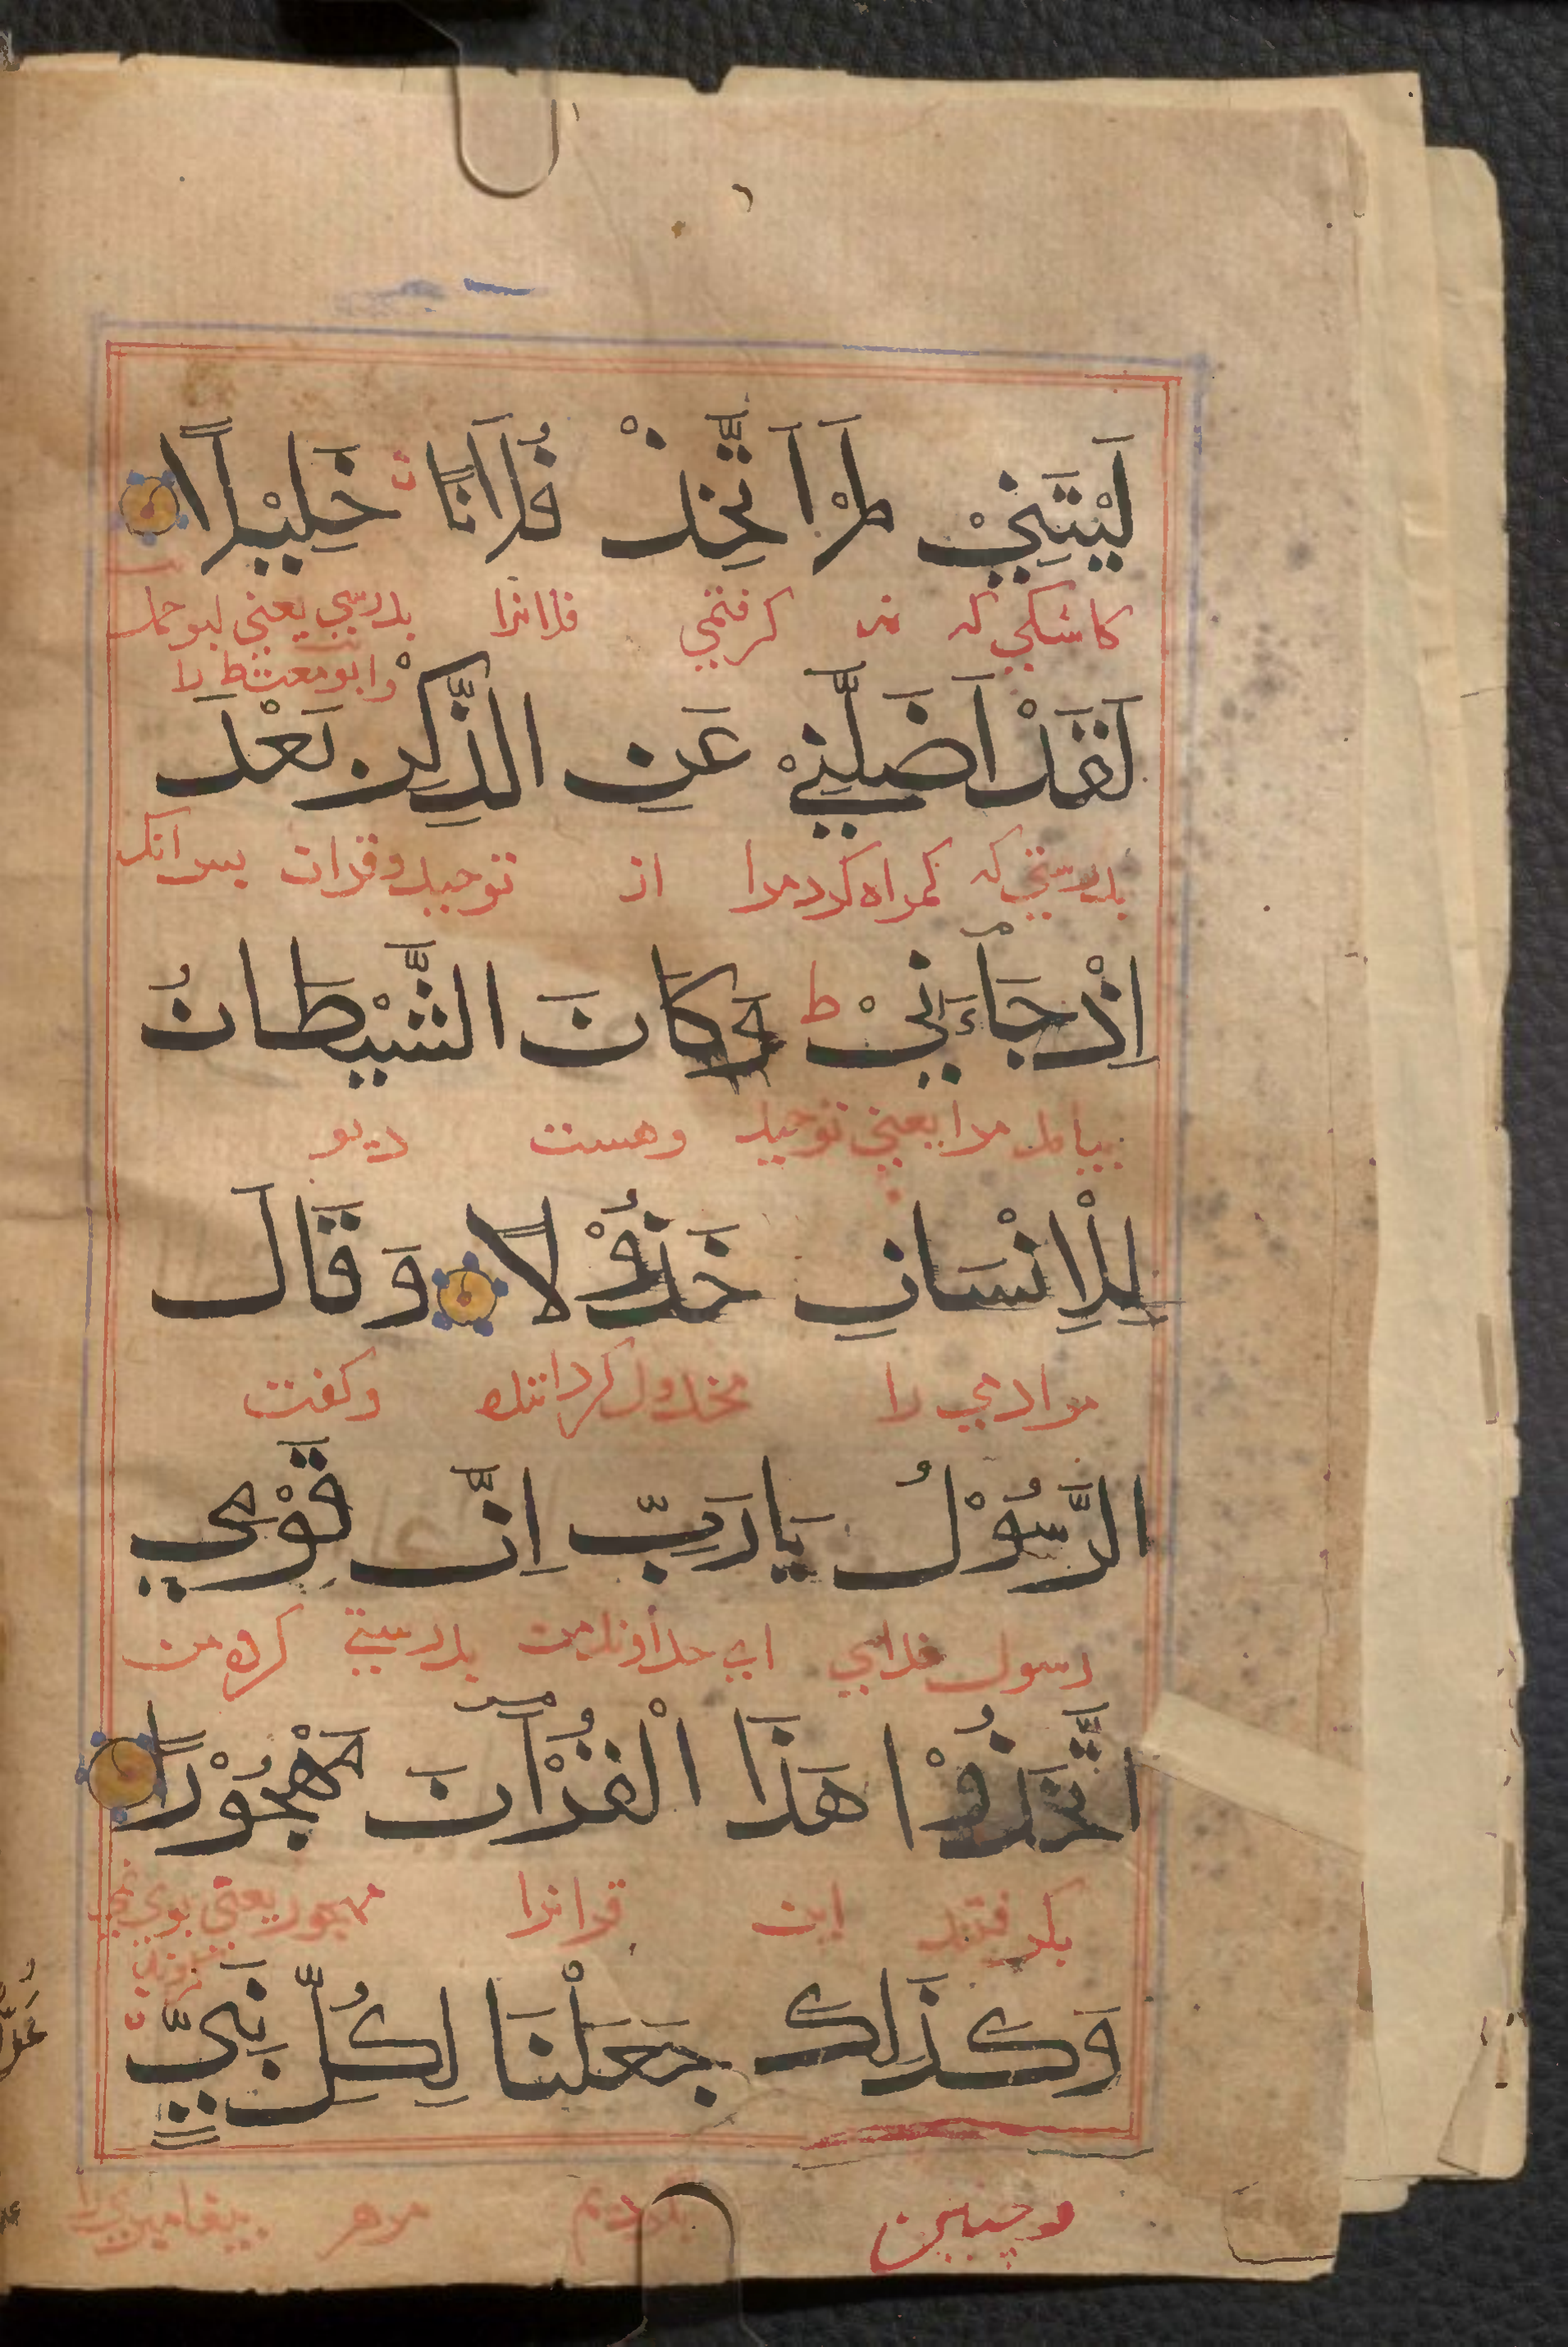 لَيْتَنِيْ لَمْ اَتَّخِذْ فُلَانًا خَلِيْلًا
كاشكي كه نه گرفتمي فلانرا بدوستي يعني ابو جهل
وابو معشط را
لَقَدْ اَضَلَّنِيْ عَنِ الذِّكْرِ بَعْدَ
بدرستي كه گمراه كرد مرا از توحيد و قران پس انكه
اِذْ جَآءَنِيْ ط وَكَانَ الشَّيْطَانُ
بيامد مرا يعني توحيد وهست ديو
لِلْاِنْسَانِ خَذُوْلًا وَقَالَ
مر ادمي را مخذول گرداننده وگفت
الرَّسُوْلُ يَارَبِّ اِنَّ قَوْمِي
رسول خداي اي خداوند من بدرستي گروه من
اتَّخَذُوْا هَذَا الْقُرْآنَ مَهْجُوْرًا
بگرفتند اين قرانرا مهجور يعني بوي نمي
گروند
وَكَذَلِكَ جَعَلْنَا لِكُلِّ نَبِيٍّ
وچنين كرديم مر هر پيغامبري را